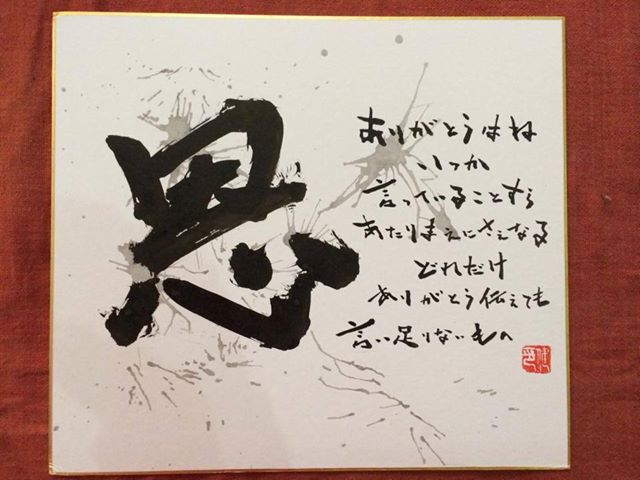 恩
ありがとうはね
いつか
言っていることすら
あたりまえにさえなる
どれだけ
ありがとう伝えても
言い足りないもの